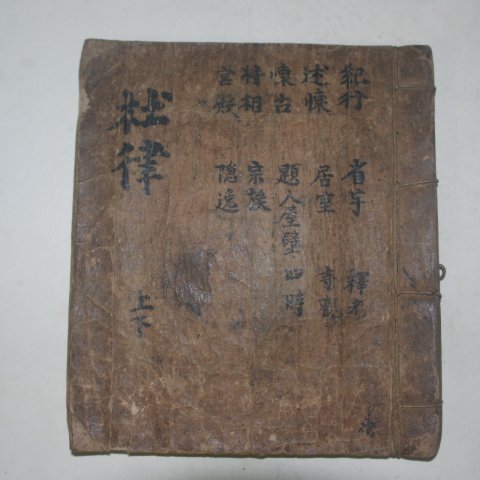 紀行 省宇 釋老
述懷 居室 寺觀
懷古 題人屋壁 四時
將相 宗族
宮殿 隱逸
杜律 上下